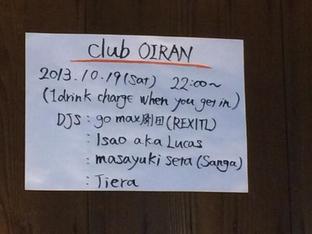 club OIRAN
2013.10.19(Sat) 22:00~
(1drink charge when you get in)
DJS : go max財団(REXITL)
: Isao aka Lucas
: masayuki seta (Sanga)
: Tiera